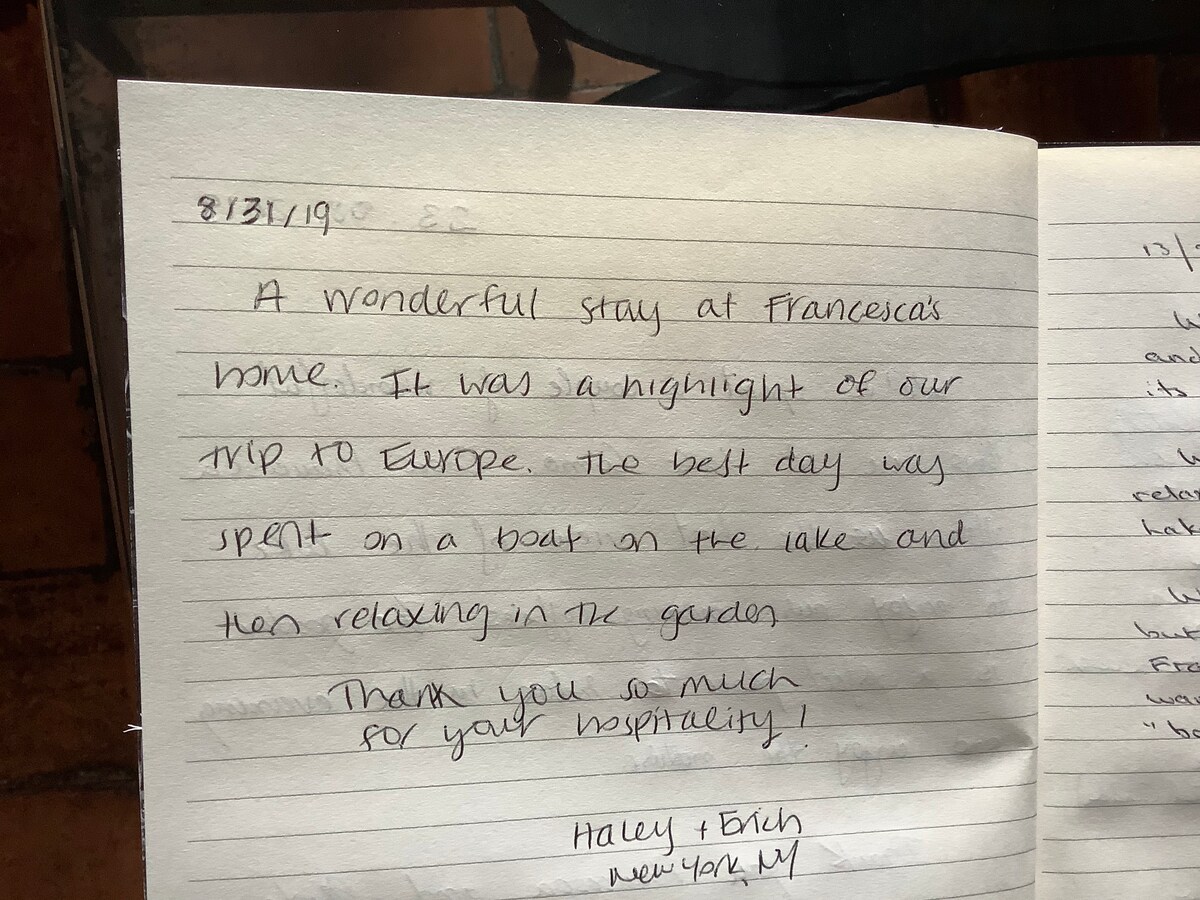 8/31/19
A wonderful stay at Francesca's
home. It was a highlight of our
trip to Europe. The best day was
spent on a boat on the lake and
then relaxing in the garden
Thank you so much
for your hospitality!
Haley + Erich
New York, NY
13/
and
its
but